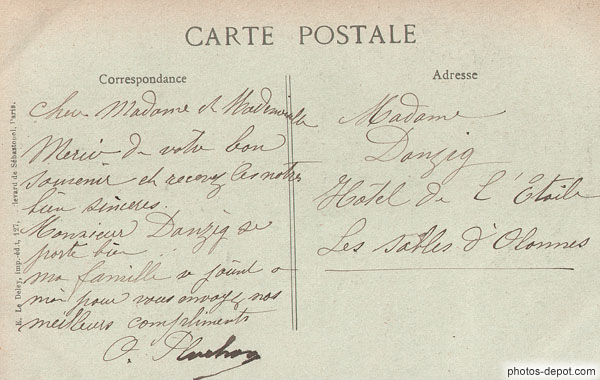 CARTE POSTALE
Correspondance
Adresse
cher Madame et Mademoiselle
Merci de votre bon
souvenir et recevez les notres
bien sincères.
Monsieur Danzig se
porte bien
ma famille se joint a
moi pour vous envoyez nos
meilleurs compliments
Madame
Danzig
Hotel de l'Etoile
Les Sables d'Olonnes
E. Le Deley, imp.-édit., 127, boulevard de Sébastopol, Paris.
photos-depot.com